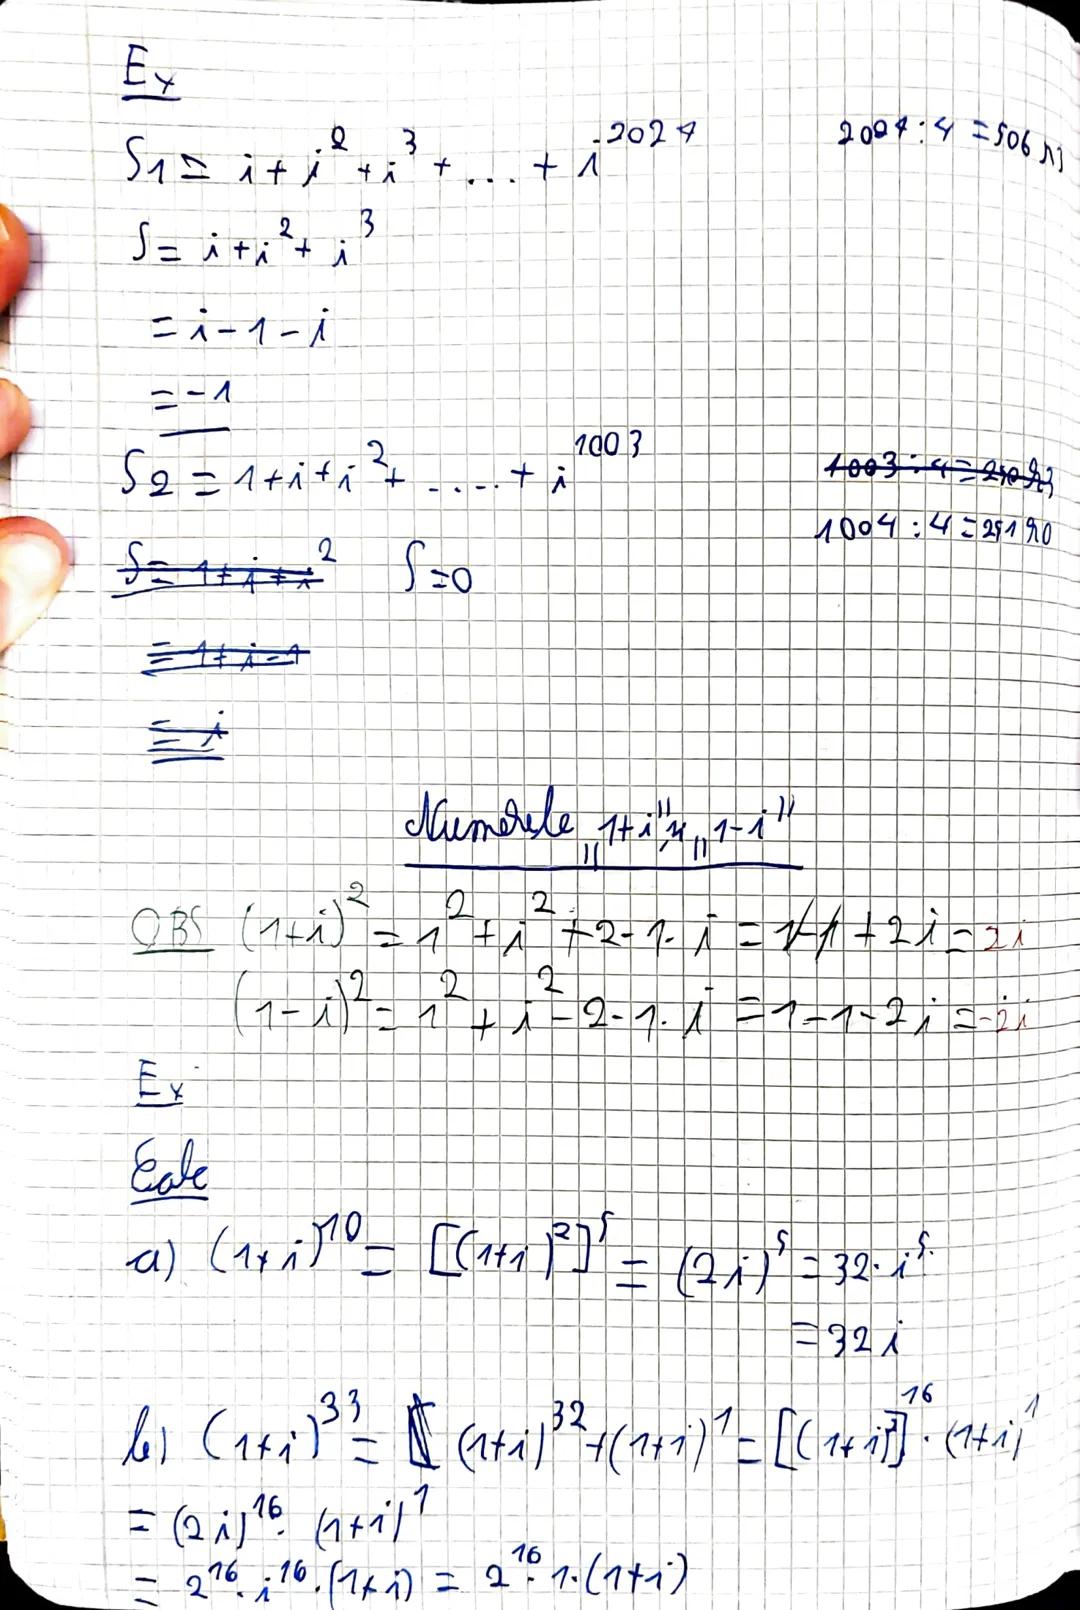 Ex
S1 = i + i² + i³ + ... + i²⁰²⁷ 2027 : 4 = 506 r3
S = i + i² + i³
= i - 1 - i
= -1
S2 = 1 + i + i² + ..... + i¹⁰⁰³ 1003 : 4 = 250 r3
1004 : 4 = 251 r0
S = 1 + i + i² S = 0
= 1 + i - 1
= i
Numerele „1+i" și „1-i"
OBS (1+i)² = 1² + i² + 2·1·i = 1-1+2i = 2i
(1-i)² = 1² + i² - 2·1·i = 1-1-2i = -2i
Ex
Calc
a) (1+i)¹⁰ = [(1+i)²]⁵ = (2i)⁵ = 32·i⁵
= 32i
b) (1+i)³³ = (1+i)³² + (1+i)¹ = [(1+i)²]¹⁶ · (1+i)¹
= (2i)¹⁶ · (1+i)¹
= 2¹⁶ · i¹⁶ · (1+i) = 2¹⁶ · 1 · (1+i)